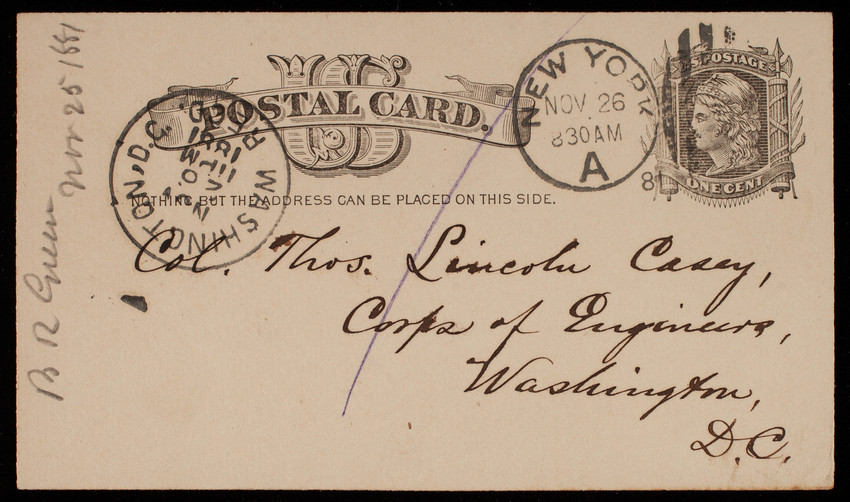 B R Green
Nov 25 1881
US
POSTAL CARD.
NOTHING BUT THE ADDRESS CAN BE PLACED ON THIS SIDE.
NEW YORK
NOV 26
830AM
A
U.S. POSTAGE
ONE CENT
WASHINGTON, D.C.
NOV
1881
REC'D
Col. Thos. Lincoln Casey,
Corps of Engineers,
Washington,
D.C.